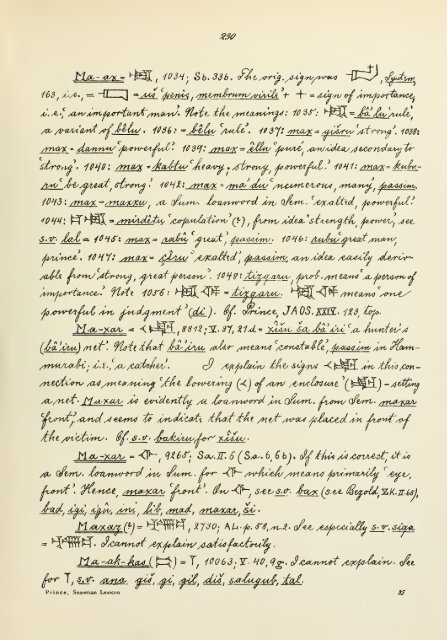 230
Ma-ax = 𒈤, 1034; Sb. 336. The orig. sign was , System,
163, i.e., = uš 'penis, membrum virile' + + = sign of importance,
i.e., 'an important man'. Note the meanings: 1035: = bâ'lu 'rule',
a variant of bêlu. 1036: = bêlu 'rule'. 1037: max = gišru 'strong'. 1038:
max = dannu 'powerful'. 1039: max = êllu 'pure', an idea secondary to
'strong'. 1040: max = kabtu 'heavy, strong, powerful'. 1041: max = kubu-
ru 'be great, strong'. 1042: max = ma'du 'numerous, many', passim.
1043: max = maxxu, a Sum. loanword in Sem. 'exalted, powerful'.
1044: = mirdêtu 'copulation' (?), from idea 'strength, power', see
s.v. lal = 1045: max = rabû 'great', passim. 1046: rubû 'great man,
prince'. 1047: max = çîru 'exalted', passim, an idea easily deriv-
able from 'strong, great person'. 1049: tizqaru, prob. means 'a person of
importance'. Note 1056: = tizqaru. means 'one
powerful in judgment' (di). Cf. Prince, JAOS. XXIV. 123, top.
Ma-xar = , 8812; V. 37, 21d = xîšu ša bâ'iri 'a hunter's
(bâ'iru) net'. Note that bâ'iru also means 'constable', passim in Ham-
murabi; i.e., 'a catcher'. I explain the signs in this con-
nection as meaning 'the lowering (<) of an enclosure' ( ) = setting
a net. Maxar is evidently a loanword in Sum. from Sem. maxar
'front', and seems to indicate that the net was placed in front of
the victim. Cf. s.v. bakiru for xîšu.
Ma-xar = , 9265; Sa. II. 6 (Sa. 6, 5b). If this is correct, it is
a Sem. loanword in Sum. for which means primarily 'eye,
front'. Hence, maxar 'front'. On see s.v. bax (see Bezold, ZK. II. 65),
bad, igi, igû, ini, lib, mad, maxar, ši.
Maxaz (?) = , 2730; AL. p. 58, n. 2. See especially s.v. siga
= . I cannot explain satisfactorily.
Ma-ak-kas ( ) = , 10063; V. 40, 9g. I cannot explain. See
for , s.v. ana, giš, gi, gil, diš, salugub, tal.
Prince, Sumerian Lexicon 15